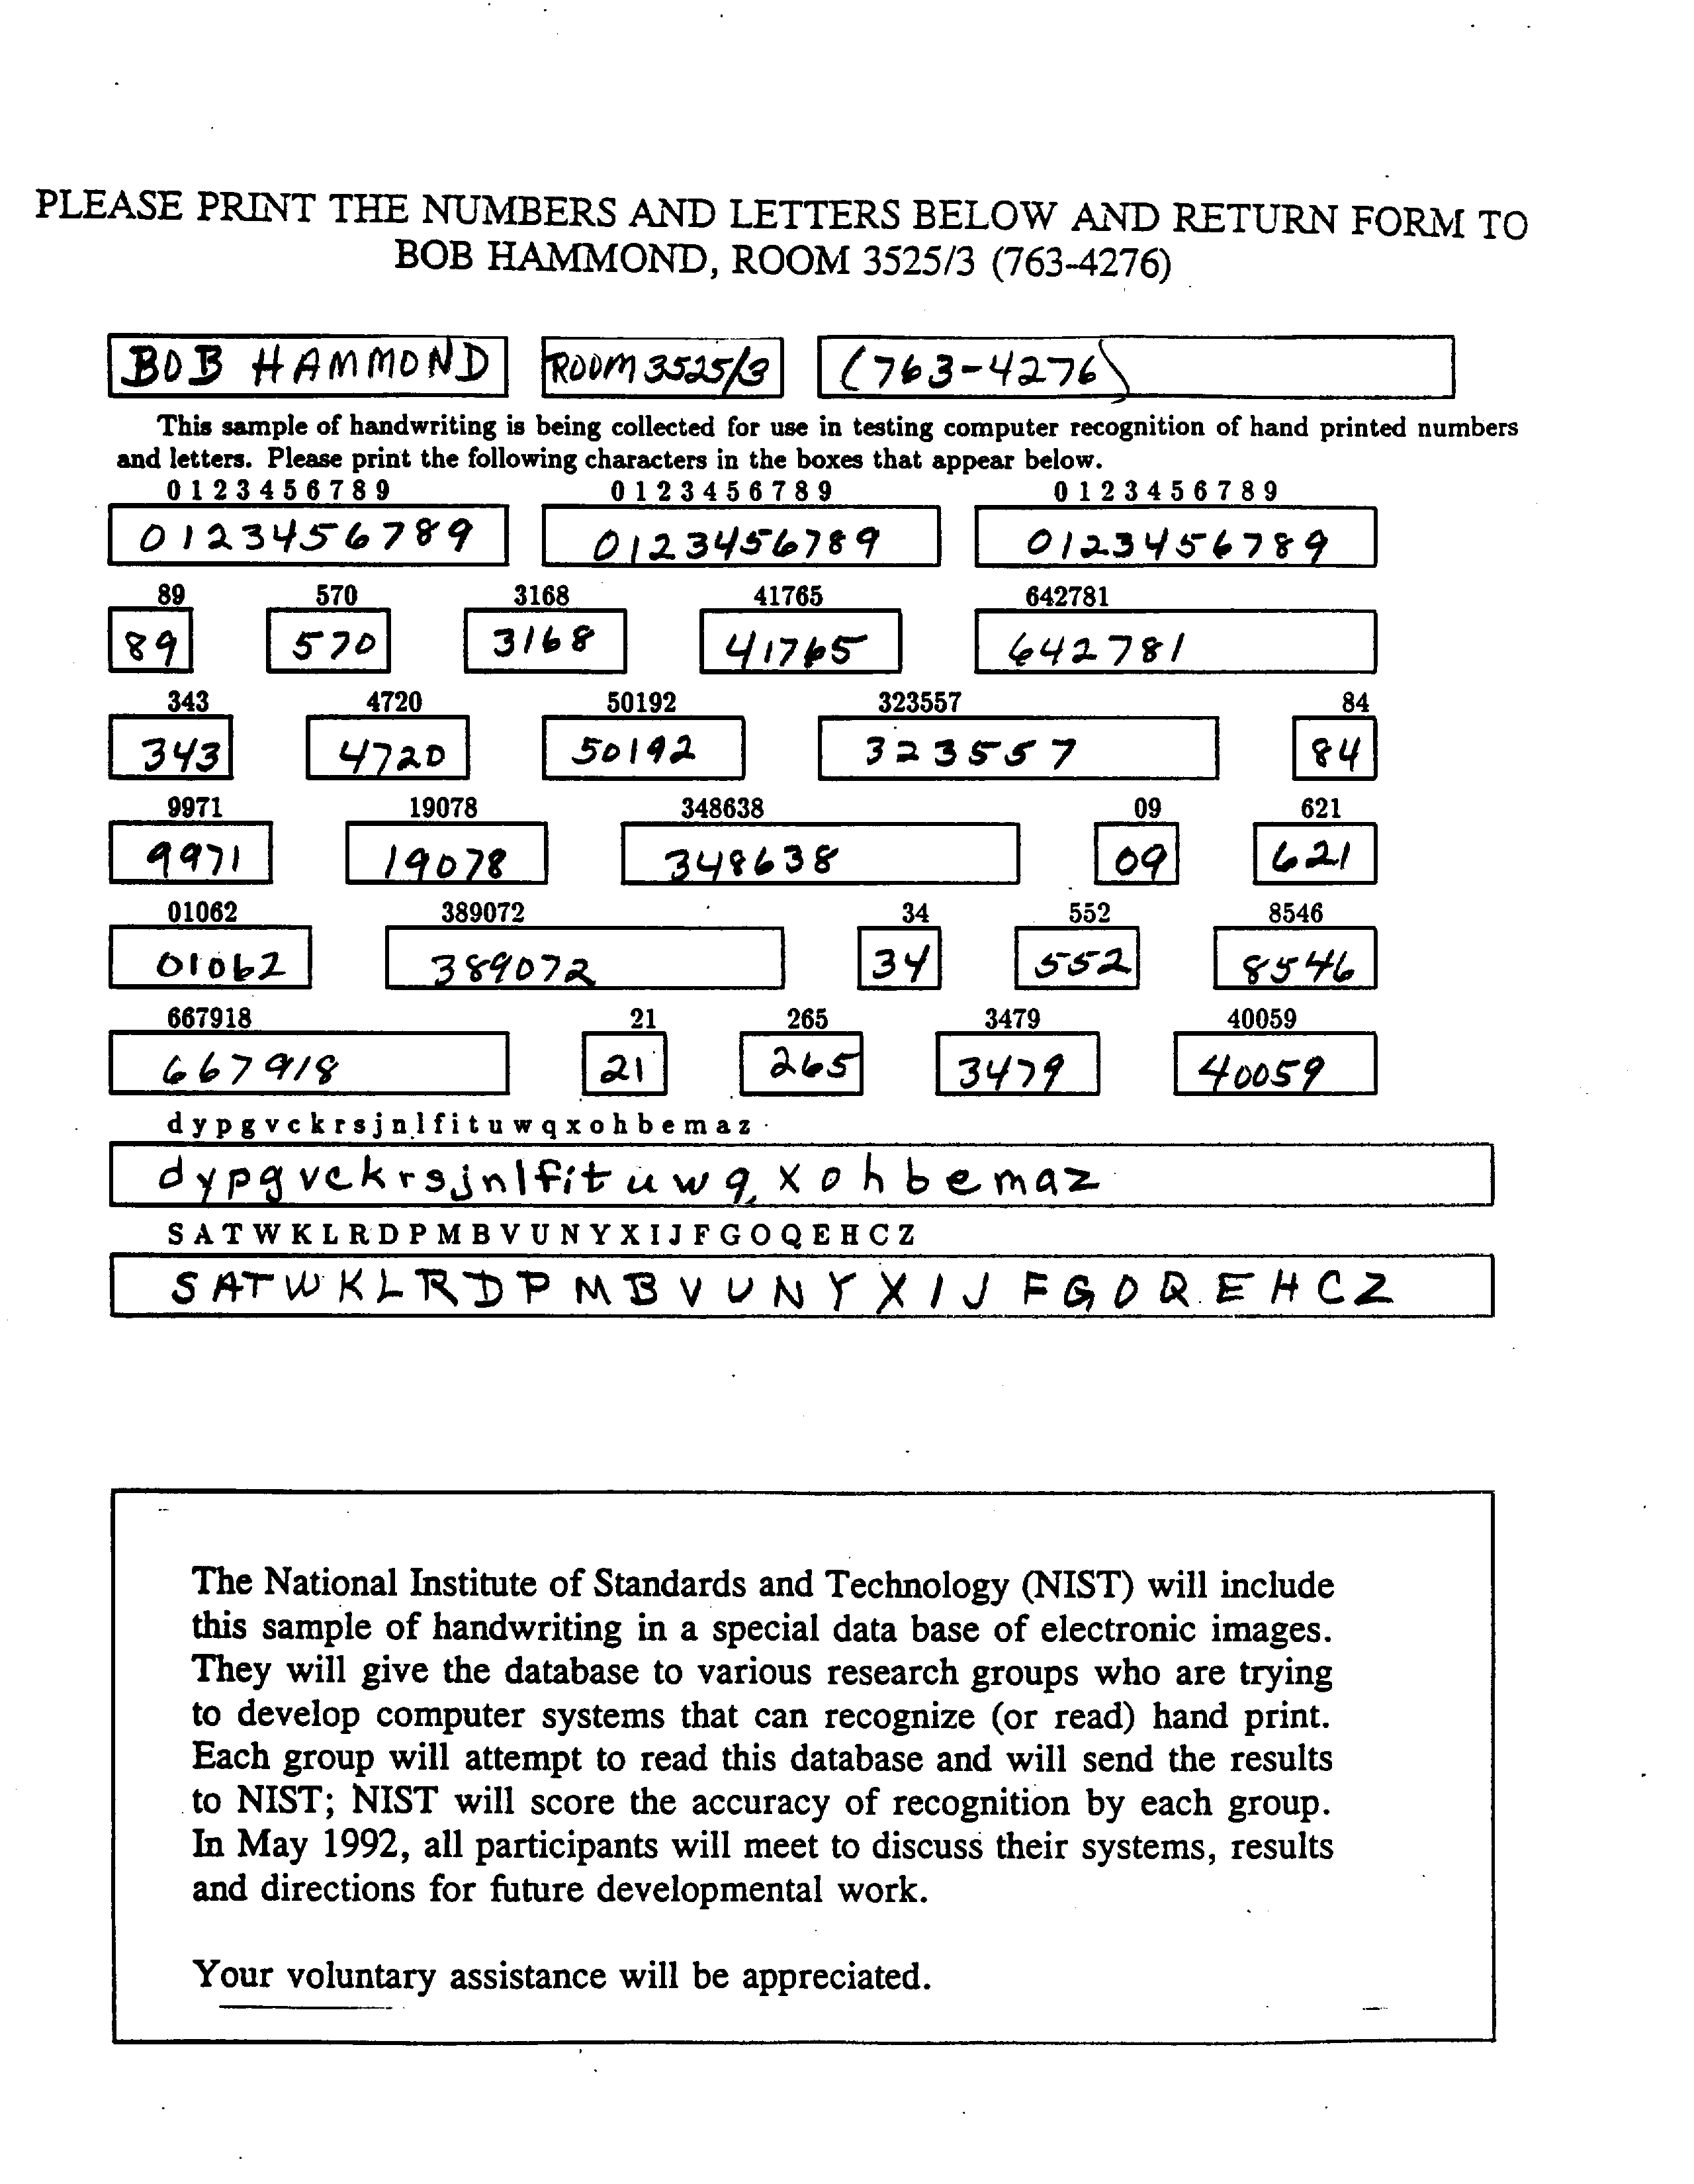 PLEASE PRINT THE NUMBERS AND LETTERS BELOW AND RETURN FORM TO
BOB HAMMOND, ROOM 3525/3 (763-4276)
BOB HAMMOND ROOM 3525/3 (763-4276)
This sample of handwriting is being collected for use in testing computer recognition of hand printed numbers
and letters. Please print the following characters in the boxes that appear below.
0 1 2 3 4 5 6 7 8 9 0 1 2 3 4 5 6 7 8 9 0 1 2 3 4 5 6 7 8 9
0123456789 0123456789 0123456789
89 570 3168 41765 642781
89 570 3168 41765 642781
343 4720 50192 323557 84
343 4720 50192 323557 84
9971 19078 348638 09 621
9971 19078 348638 09 621
01062 389072 34 552 8546
01062 389072 34 552 8546
667918 21 265 3479 40059
667918 21 265 3479 40059
d y p g v c k r s j n l f i t u w q x o h b e m a z
d y p g v c k r s j n l f i t u w q x o h b e m a z
S A T W K L R D P M B V U N Y X I J F G O Q E H C Z
S A T W K L R D P M B V U N Y X I J F G O Q E H C Z
The National Institute of Standards and Technology (NIST) will include
this sample of handwriting in a special data base of electronic images.
They will give the database to various research groups who are trying
to develop computer systems that can recognize (or read) hand print.
Each group will attempt to read this database and will send the results
to NIST; NIST will score the accuracy of recognition by each group.
In May 1992, all participants will meet to discuss their systems, results
and directions for future developmental work.
Your voluntary assistance will be appreciated.